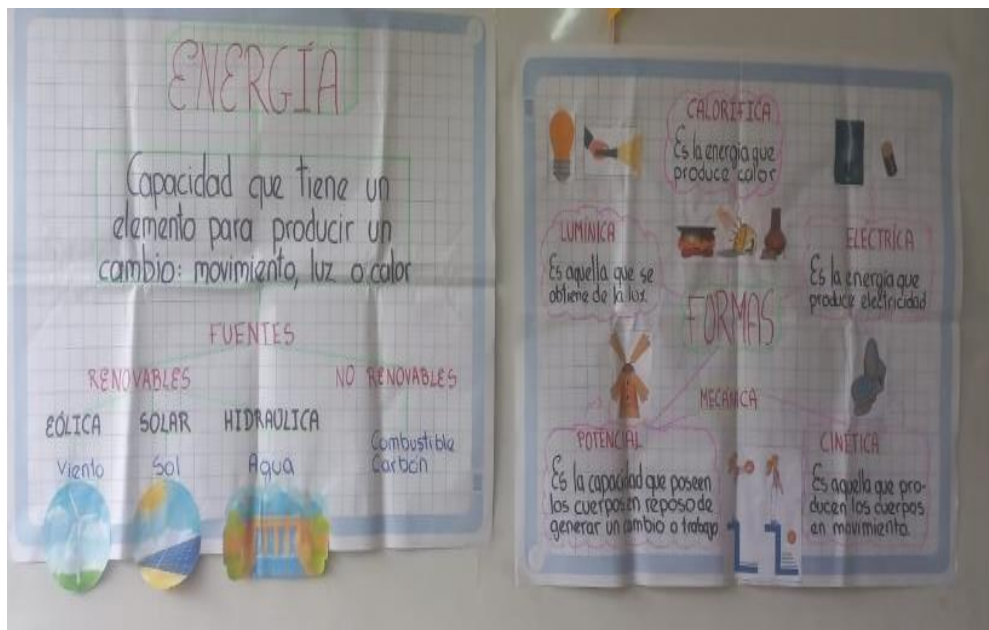 ENERGÍA
Capacidad que tiene un
elemento para producir un
cambio: movimiento, luz o calor
FUENTES
RENOVABLES
NO RENOVABLES
EÓLICA SOLAR HIDRAULICA
Viento Sol Agua
Combustible
Carbón
CALORÍFICA
Es la energia que
produce calor
LUMÍNICA
Es aquella que se
obtiene de la luz
ELECTRICA
Es la energia que
produce electricidad
FORMAS
MECÁNICA
POTENCIAL
Es la capacidad que poseen
los cuerpos en reposo de
generar un cambio o trabajo
CINETICA
Es aquella que pro-
ducen los cuerpos
en movimiento.